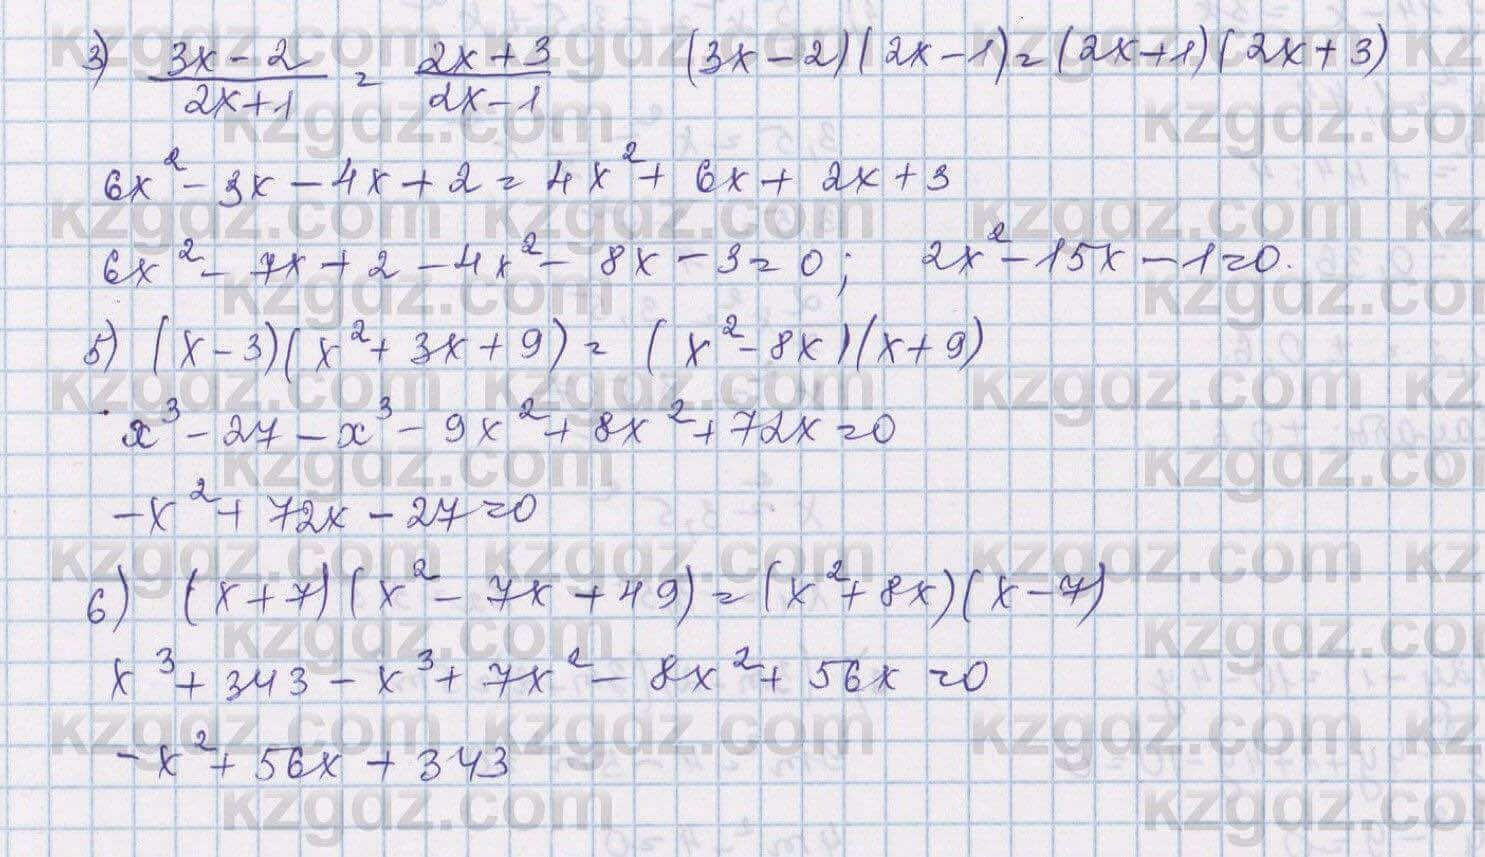 3) (3x-2)/(2x+1) = (2x+3)/(2x-1)   (3x-2)(2x-1)=(2x+1)(2x+3)
6x²-3x-4x+2=4x²+6x+2x+3
6x²-7x+2-4x²-8x-3=0;   2x²-15x-1=0.
5) (x-3)(x²+3x+9)=(x²-8x)(x+9)
x³-27-x³-9x²+8x²+72x=0
-x²+72x-27=0
6) (x+7)(x²-7x+49)=(x²+8x)(x-7)
x³+343-x³+7x²-8x²+56x=0
-x²+56x+343
kzgdz.com